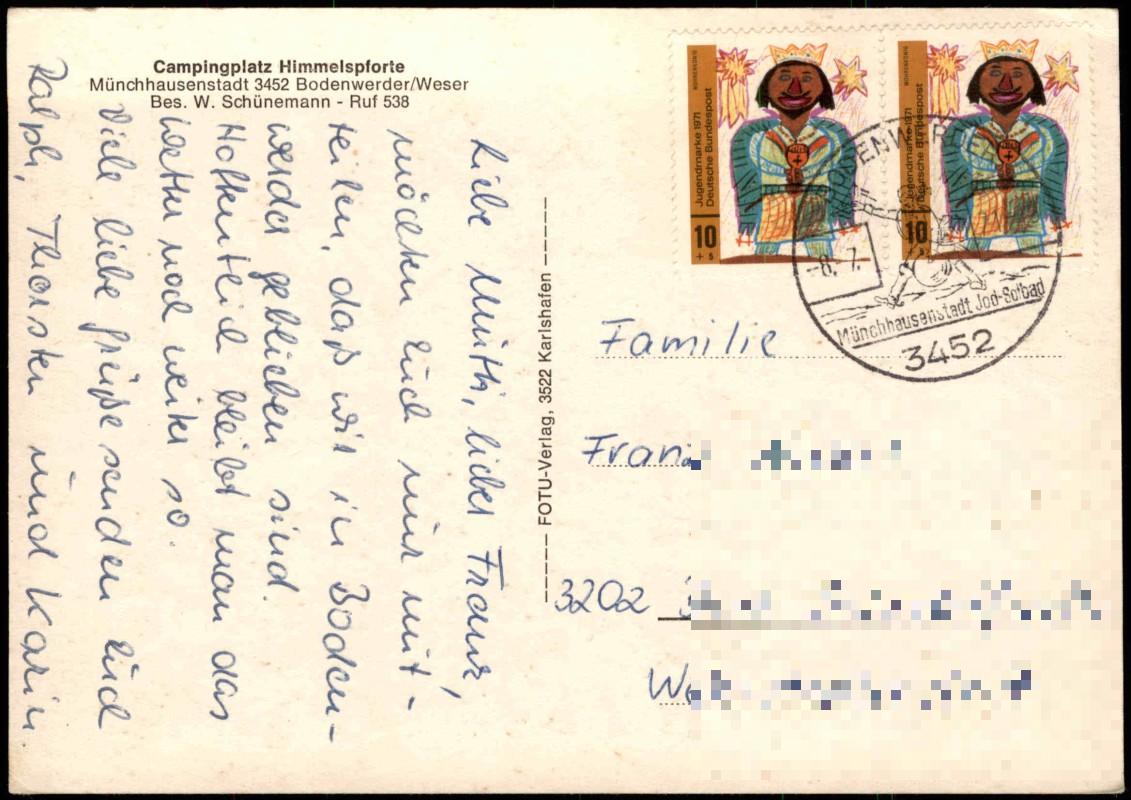 Campingplatz Himmelspforte
Münchhausenstadt 3452 Bodenwerder/Weser
Bes. W. Schünemann - Ruf 538
Liebe Mutti, lieber Franz,
möchten Euch nur mit-
teilen, daß wir in Boden-
werder geblieben sind.
Hoffentlich bleibt man das
Wetter noch weiter so.
Viele liebe Grüße senden Euch
Ralph, Thorsten und Karin
FOTU-Verlag, 3522 Karlshafen
Jugendmarke 1971
Deutsche Bundespost
10
+ 5
Jugendmarke 1971
Deutsche Bundespost
10
+ 5
BODENWERDER
-8. 7.
Münchhausenstadt Jod-Solbad
3452
Familie
Franz
3202